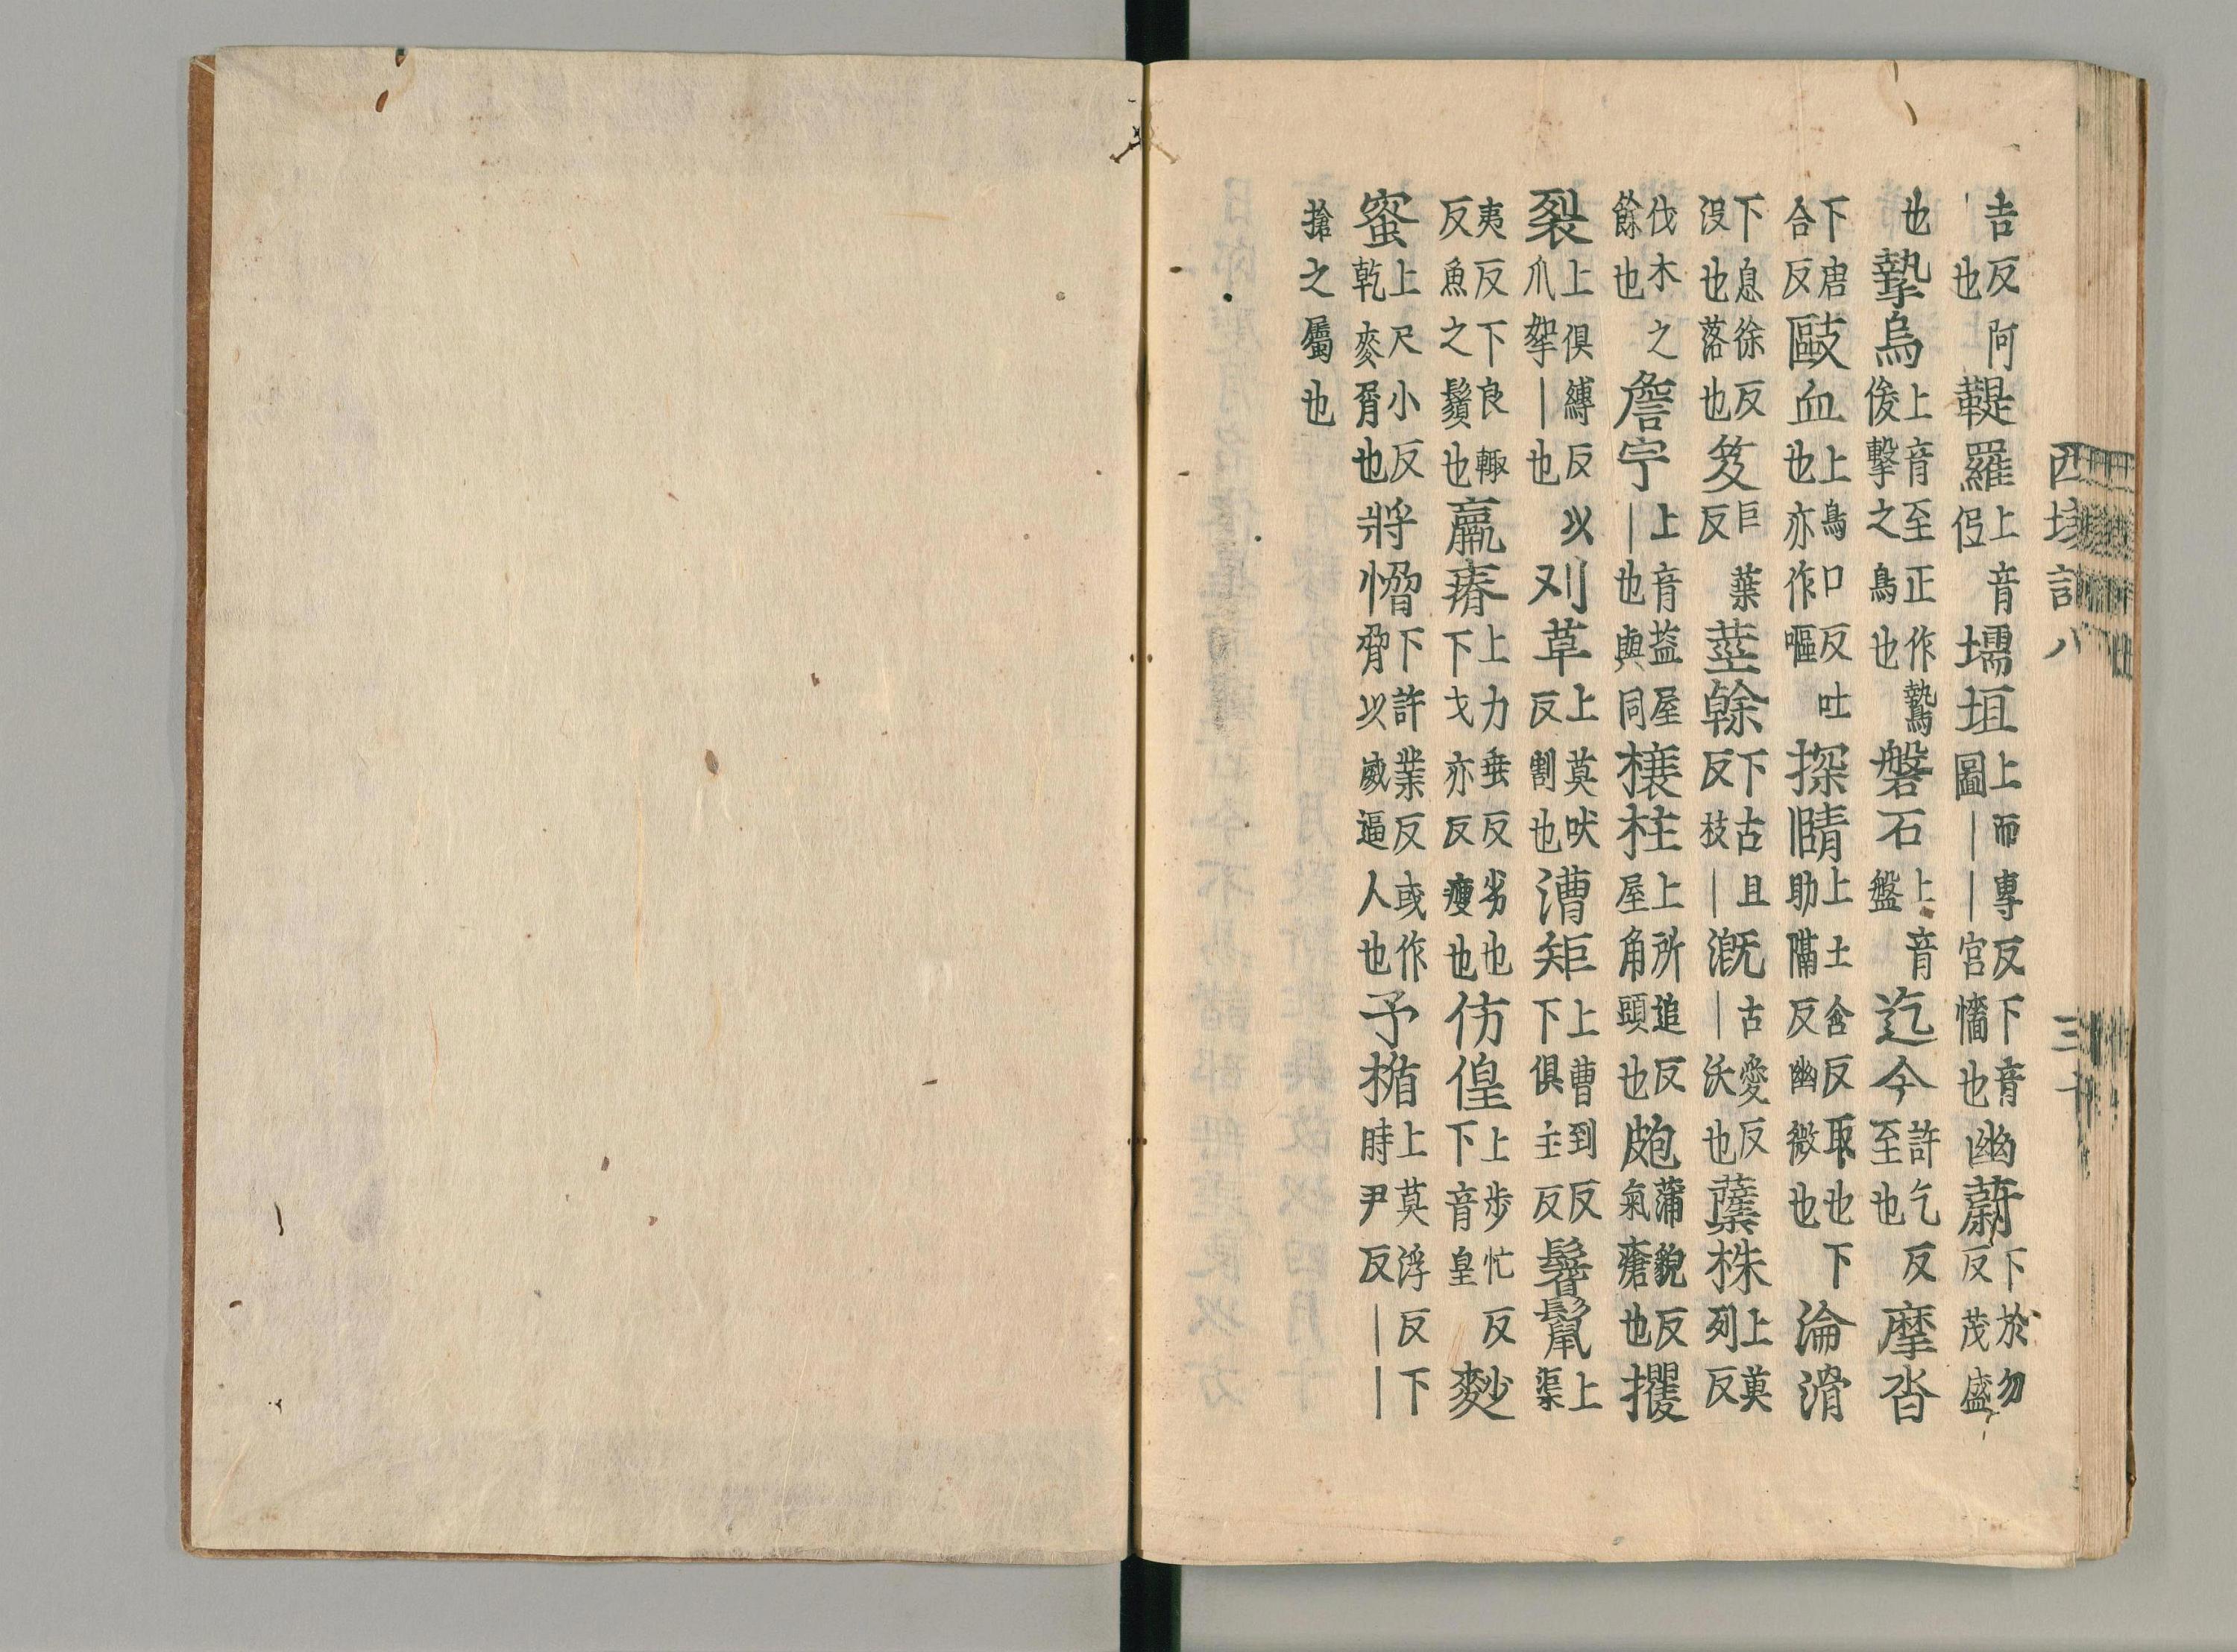 西域記八 三十
吉反阿也鞮羅上音伇壖垣上而專反下音圖――宮牆也幽蔚下於勿反茂盛
也摯烏上音至正作鷙俊擊之鳥也磐石上音盤迄今許乞反至也摩沓
下唐合反敺血上烏口反吐也亦作嘔探賾上土含反取也下助隔反幽微也淪滑
下息徐反没也落也笈巨葉反莖榦下古旦反枝―漑古愛反―沃也蘖株上莫列反
伐木之餘也簷宇上音盐屋―也與同欀柱上所追反屋角頭也皰蒲貌反氣瘡也攫
裂上俱縛反以爪拏―也刈草上莫吠反割也漕矩上曹到反下俱主反鬐鬣上渠
夷反下良輙反魚之鬚也羸瘠上力垂反劣也下戈亦反瘦也仿偟上步忙反下音皇麨
蜜上尺小反乾麥屑也將愶下許業反或作脅以威逼人也矛楯上莫浮反下時尹反――
搶之屬也